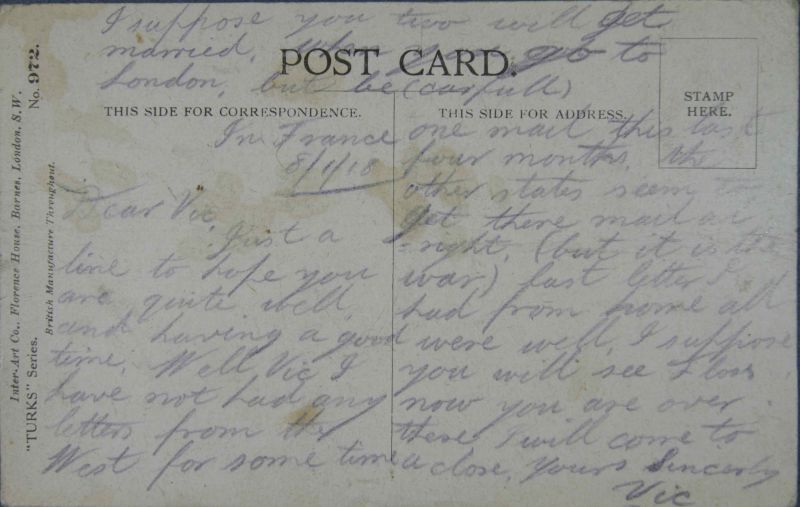 I suppose you two will get
married, when you go to
London, but be (carfull)
POST CARD.
THIS SIDE FOR CORRESPONDENCE.
THIS SIDE FOR ADDRESS.
STAMP
HERE.
In France
8/1/18
Dear Vic
Just a
line to hope you
are quite well,
and having a good
time. Well Vic I
have not had any
letters from the
West for some time
one mail this last
four months, the
other states seem to
get there mail all
-right, (but it is the
war) last letter I
had from home all
were well. I suppose
you will see Floss
now you are over
there I will come to
a close, Yours Sincerly
Vic
Inter-Art Co., Florence House, Barnes, London, S.W.
"TURKS" Series.
No. 972.
British Manufacture Throughout.